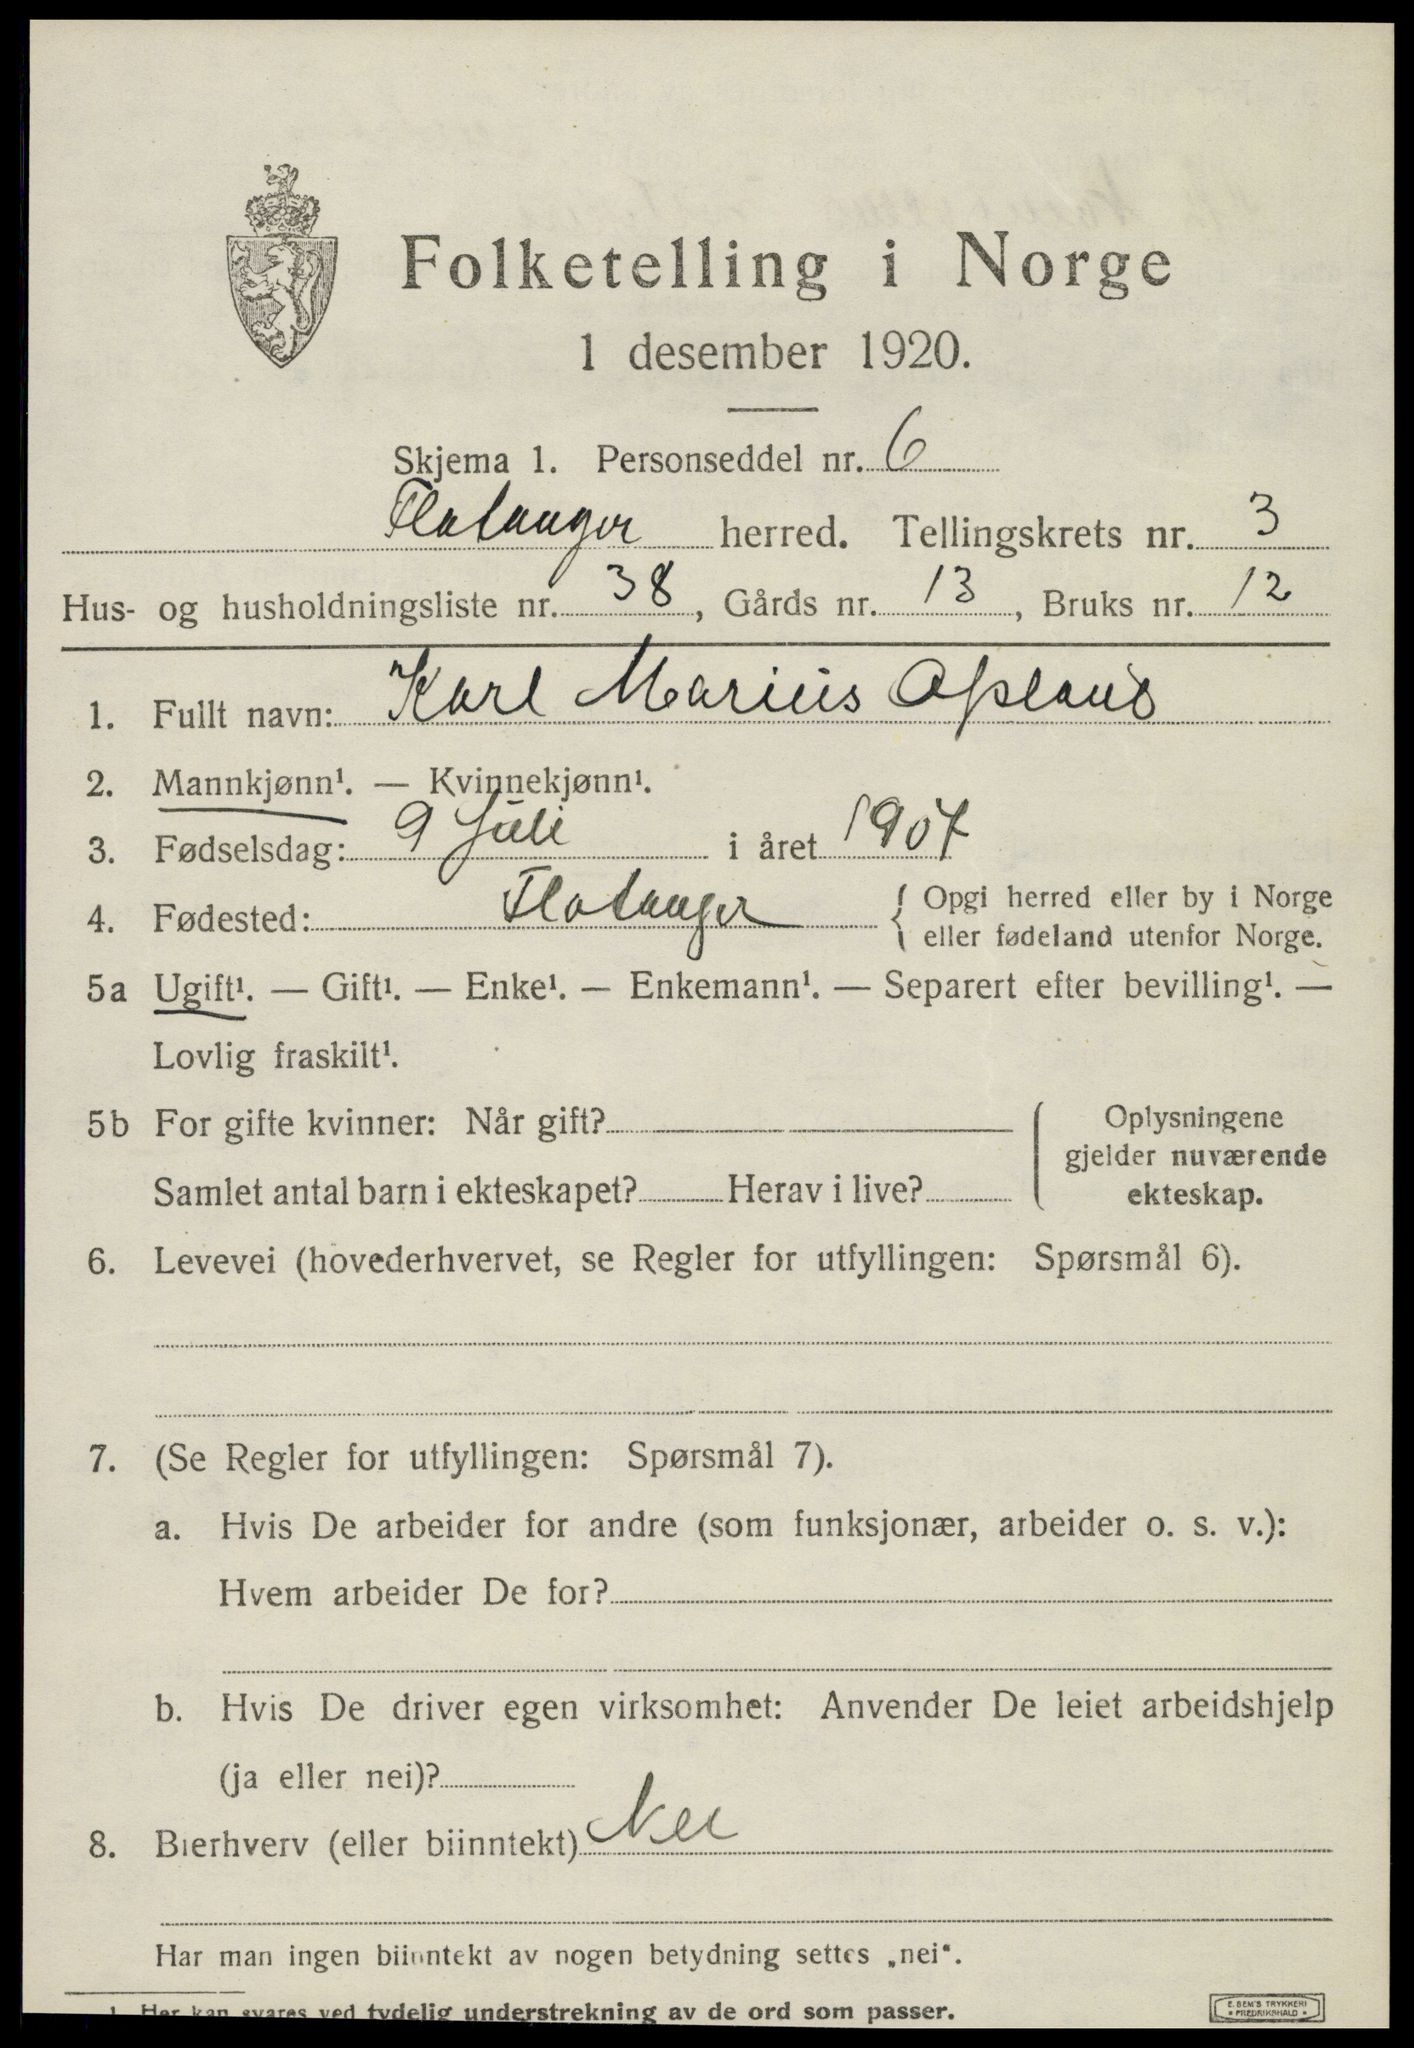 Folketelling i Norge
1 desember 1920.
Skjema 1. Personseddel nr. 6
Flatanger herred. Tellingskrets nr. 3
Hus- og husholdningsliste nr. 38, Gårds nr. 13, Bruks nr. 12
1. Fullt navn: Karl Marius Opland
2. Mannkjønn¹. — Kvinnekjønn¹.
3. Fødselsdag: 9 Juli i året 1907
4. Fødested: Flatanger { Opgi herred eller by i Norge
eller fødeland utenfor Norge.
5a Ugift¹. — Gift¹. — Enke¹. — Enkemann¹. — Separert efter bevilling¹. —
Lovlig fraskilt¹.
5b For gifte kvinner: Når gift?
Samlet antal barn i ekteskapet? Herav i live?
Oplysningene
gjelder nuværende
ekteskap.
6. Levevei (hovederhvervet, se Regler for utfyllingen: Spørsmål 6).
7. (Se Regler for utfyllingen: Spørsmål 7).
a. Hvis De arbeider for andre (som funksjonær, arbeider o. s. v.):
Hvem arbeider De for?
b. Hvis De driver egen virksomhet: Anvender De leiet arbeidshjelp
(ja eller nei)?
8. Bierhverv (eller biinntekt) Nei
Har man ingen biinntekt av nogen betydning settes „nei“.
1. Her kan svares ved tydelig understrekning av de ord som passer.
E. SEM'S TRYKKERI
FREDRIKSHALD